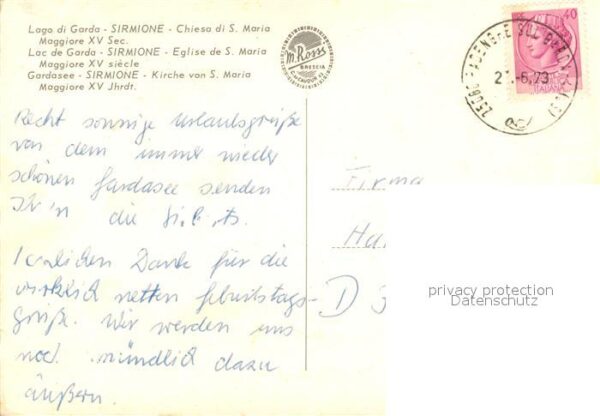 Lago di Garda - SIRMIONE - Chiesa di S. Maria
Maggiore XV Sec.
Lac de Garda - SIRMIONE - Eglise de S. Maria
Maggiore XV siècle
Gardasee - SIRMIONE - Kirche von S. Maria
Maggiore XV Jhrdt.
m. Rossi
BRESCIA
40
ITALIANA
25080 PADENGHE SUL GARDA (BS)
6.73
Recht sonnige Urlaubsgrüße
von dem immer wieder
schönen Gardasee senden
die
Herzlichen Dank für die
wirklich netten Geburtstags-
grüße. Wir werden uns
noch mündlich dazu
äußern.
Firma
Ha
D 3
privacy protection
Datenschutz